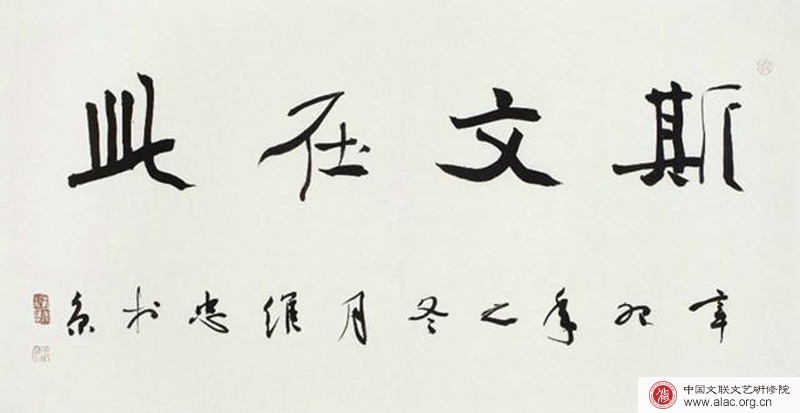 斯文在此
辛卯年之冬月維忠於京
中国文联文艺研修院
www.alac.org.cn